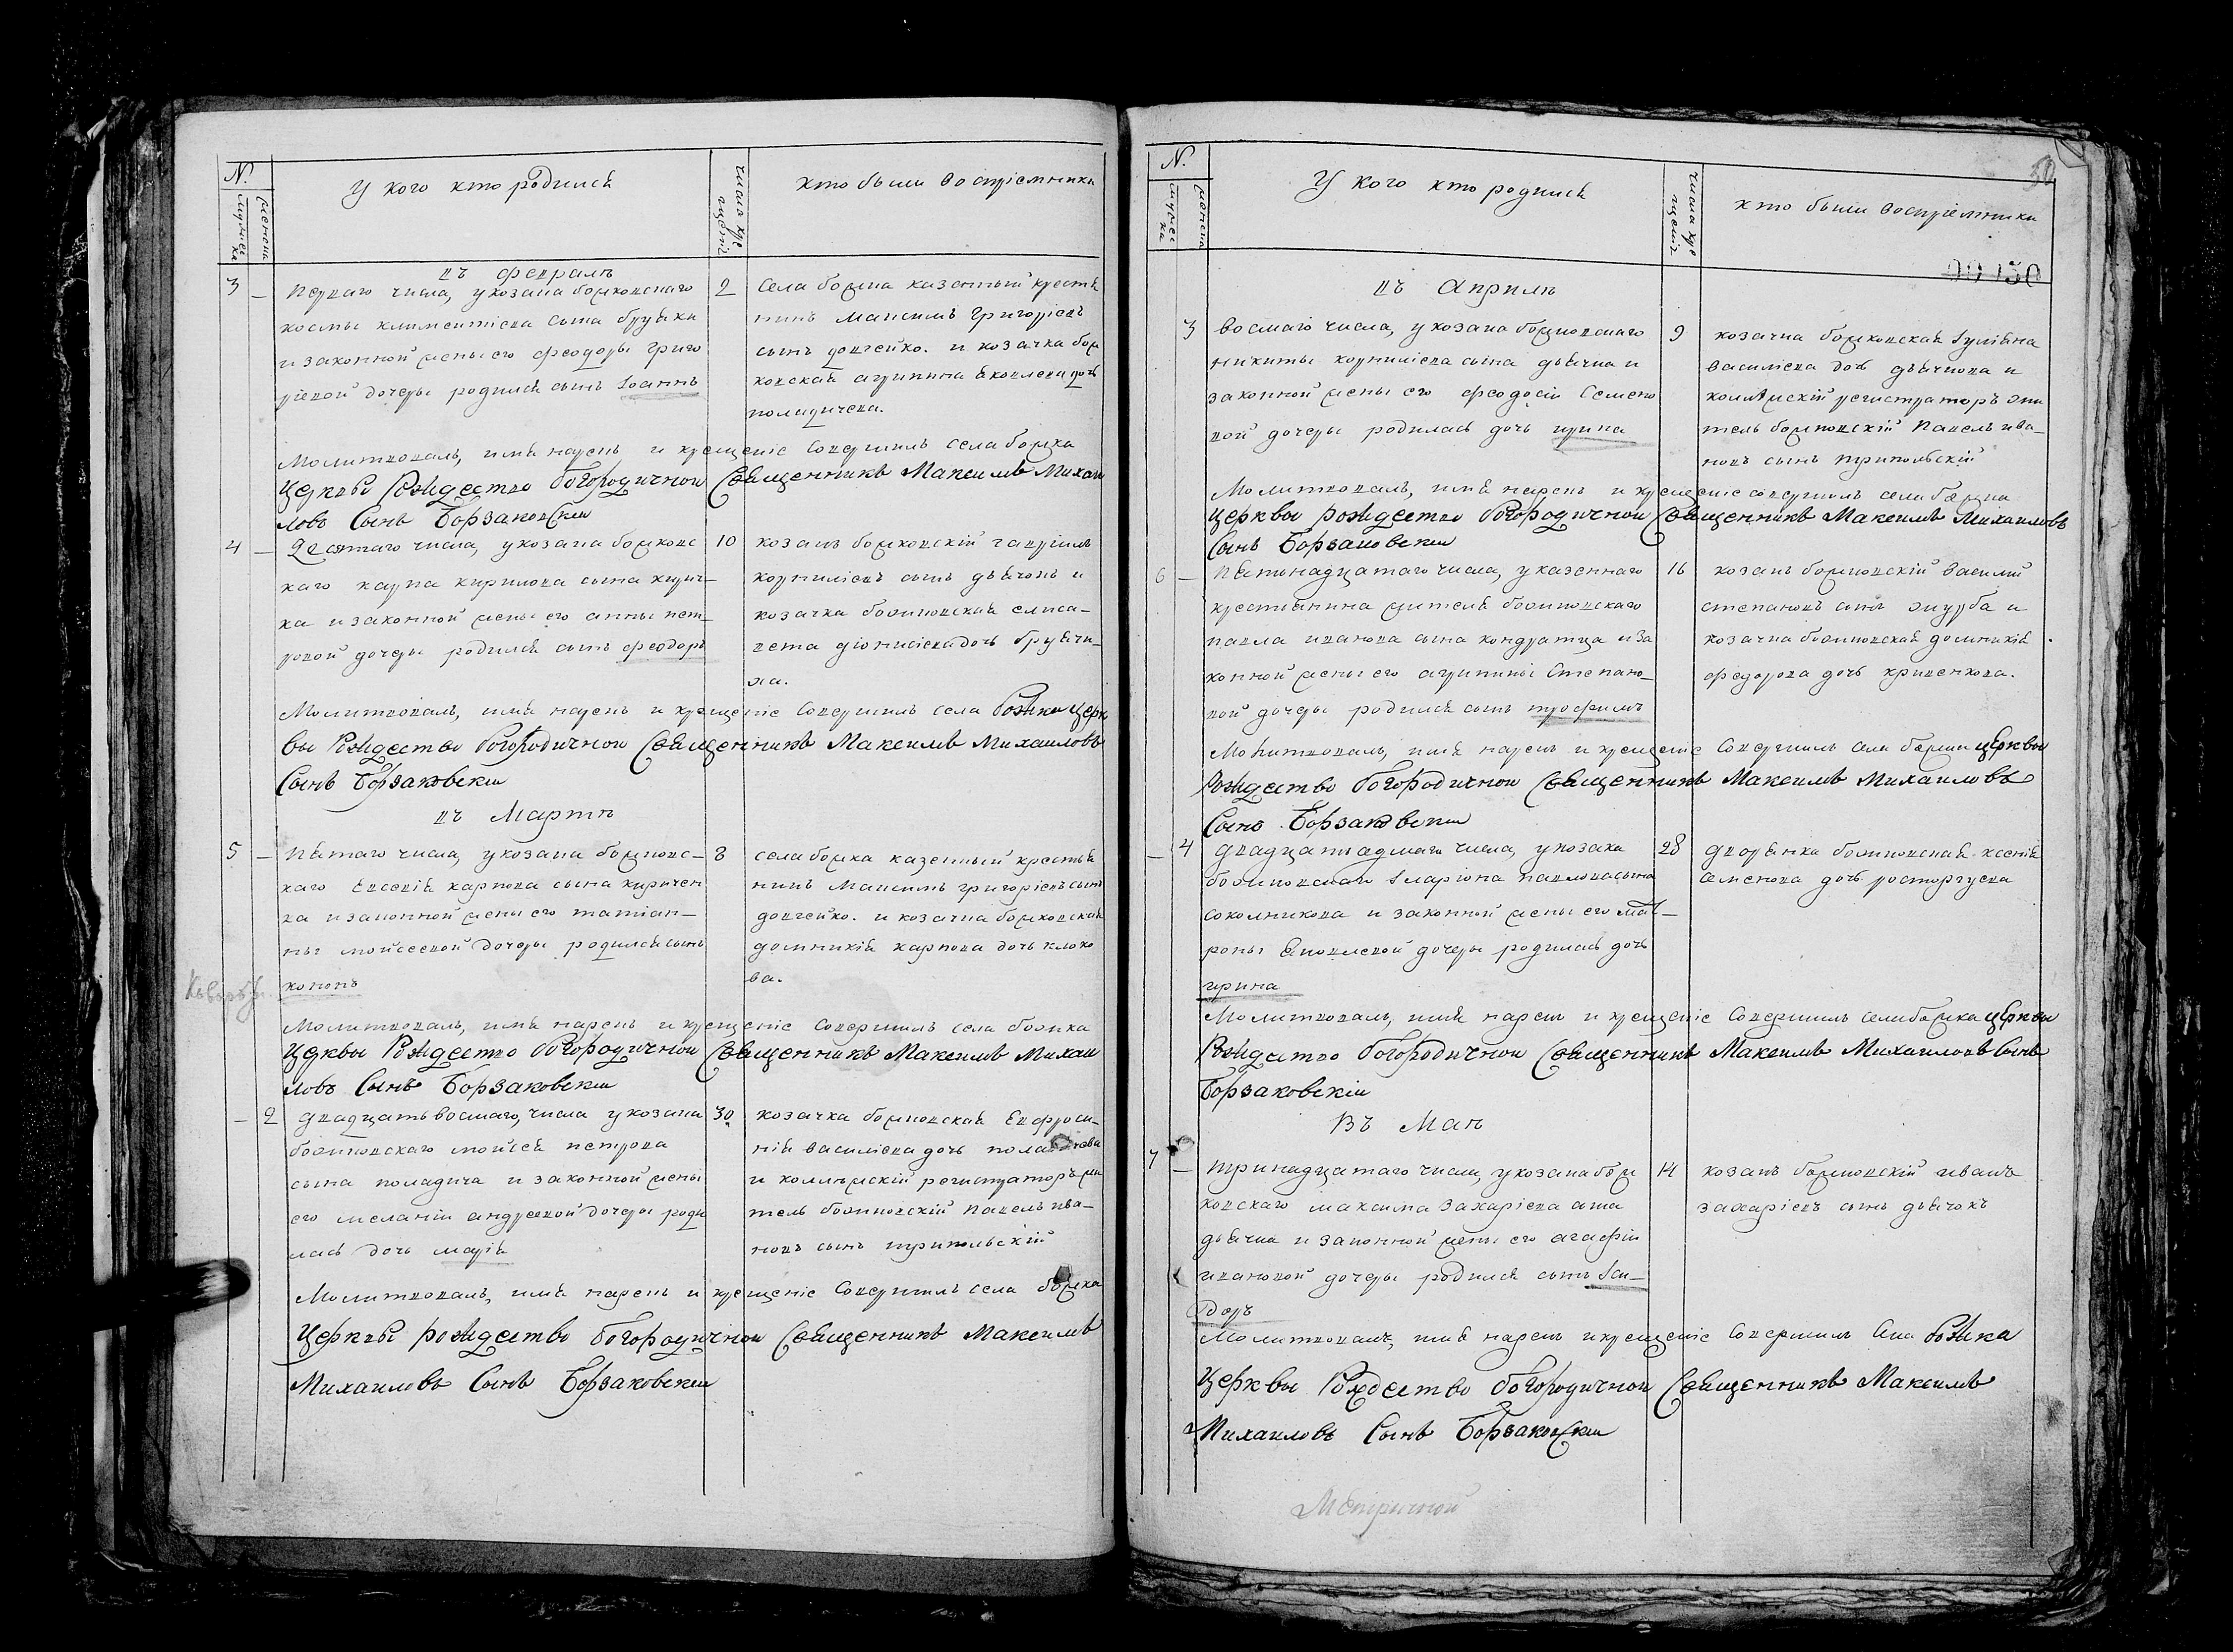 N.
мужеска
женска
У кого кто родился
число крещенія
кто были воспріемники
въ февралѣ
3 –
перваго числа, у козака божковскаго
космы климентіева сына бруяки
и законной жены его феодоры григо
ріевой дочеры родился сынъ Іоаннъ
2
села божка казенный крестья
нинъ максимъ григоріевъ
сынъ довгейко. и козачка бож
ковская агрипина яковлева дочь
поладичева.
Молитвовалъ, имя нарекъ и крещеніе совершилъ села божка
церквы Рождество богородичной священникъ Максимъ Михаи
ловъ сынъ Борзаковскии
4 –
десятаго числа, у козака божковс
каго карпа кирилова сына кирич–
ка и законной жены его анны пет–
ровой дочеры родился сынъ феодоръ
10
козакъ божковскій гавріилъ
корниліевъ сынъ дьячокъ и
козачка божковская елиса–
вета діонисіева дочь бруячи–
ха.
Молитвовалъ, имя нарекъ и крещеніе совершилъ села Божка церк
вы Рождество богородичной священникъ Максимъ Михаиловъ
сынъ Борзаковскии
въ Мартѣ
5 –
пятаго числа, у козака божковс–
каго Евсевія карпова сына киричен
ка и законной жены его татіан–
ны мойсеевой дочеры родился сынъ
кононъ
8
села божка казенный крестья
нинъ максимъ григоріевъ сынъ
довгейко. и козачка божковская
домникія карпова дочь клоко
ва.
Молитвовалъ, имя нарекъ и крещеніе совершилъ села божка
церквы Рождество богородичной священникъ Максимъ Михаи
ловъ сынъ Борзаковскии
– 2
двадцать восмаго, числа у козака
божковскаго мойсея петрова
сына поладича и законной жены
его меланіи андреевой дочеры роди
лась дочь марія
30
козачка божковская Евфроси–
нія василіева дочь
и коллежскій регистраторъ жи
тель божковскій павелъ ива–
новъ сынъ трипольскій
Молитвовалъ, имя нарекъ и крещеніе совершилъ села божка
Церквы рождество богородичной священникъ Максимъ
Михаиловъ сынъ Борзаковскии
N.
мужеска
женска
У кого кто родился
число крещенія
кто были воспріемники
въ Априлѣ
3
восмаго числа, у козака божковскаго
никиты корниліева сына дьячка и
законной жены его феодосіи Семено
вой дочеры родилась дочь ирина
9
козачка божковская Іуліяна
василіева дочь дьячкова и
коллежскій регистраторъ жи
тель божковскій Павелъ ива–
новъ сынъ трипольскій
Молитвовалъ, имя нарекъ и крещеніе совершилъ села божка
церквы рождество богородичной священникъ Максимъ Михаиловъ
сынъ Борзаковскии
6 –
пятьнадцатаго числа, у казеннаго
крестианина жителя божковскаго
павла иванова сына кондратца и за
конной жены его агрипины степано–
вой дочеры родился сынъ трофимъ
16
козакъ божковскій василій
степановъ сынъ журба и
козачка божковская домникія
федорова дочь кривенкова.
Молитвовалъ, имя нарекъ и крещеніе совершилъ села божка церквы
Рождество богородичной священникъ Максимъ Михаиловъ
сынъ Борзаковскии
– 4
двадцатьадмаго числа, у козака
божковскаго Іларіона павлова сына
сокольникова и законной жены его мат–
роны Яковлевой дочеры родилась дочь
ирина
28
дворянка божковская ксенія
семенова дочь росторгуева
Молитвовалъ, имя нарекъ и крещеніе совершилъ села божка церквы
Рождество богородичной священникъ Максимъ Михаиловъ сынъ
Борзаковскіи
Въ Маѣ
7 –
тринадцатаго числа, у козака бож
ковскаго максима захаріева сына
дьячка и законной жены его агафіи
ивановой дочеры родился сынъ Іси–
доръ
14
козакъ божковскій иванъ
захаріевъ сынъ дьячокъ
Молитвовалъ, имя нарекъ и крещеніе совершилъ села божка
Церквы Рождество богородичной священникъ Максимъ
Михаиловъ сынъ Борзаковскии